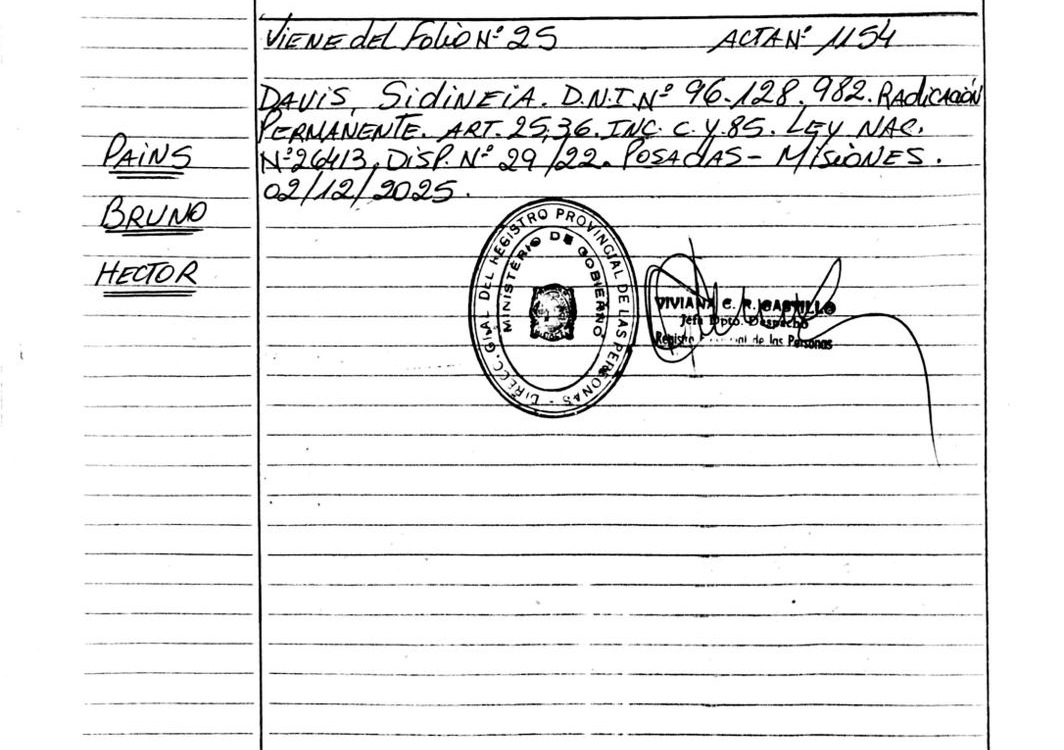 VIENE del Folio Nº 25 ACTA Nº 1154
DAVIS, SidiNEiA. D.N.I. Nº 96.128.982. RAdiCACIÓN
PERMANENTE. ART. 25,36. INC. C. Y. 85. LEY NAC.
Nº 26413, DiSP. Nº 29/22. POSAdAS - MiSiONES.
02/12/2025.
PAiNS
BRUNO
HECTOR
DIRECC. GRAL DEL REGISTRO PROVINCIAL DE LAS PERSONAS -
MINISTERIO DE GOBIERNO
VIVIANA C. R. CASTILLO
Jefa Dpto. Despacho
Registro de las Personas